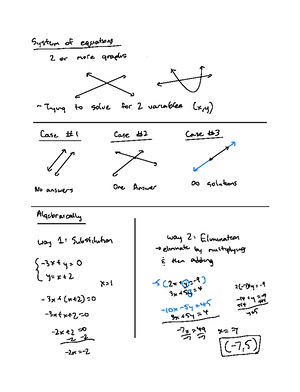 System of equations
2 or more graphs
~ Trying to solve for 2 variables (x,y)
Case #1
Case #2
Case #3
No answers
One Answer
∞ solutions
Algebraically
Way 1: Substitution
-3x+y=0
y=x+2
x=1
-3x+(x+2)=0
-3x+x+2=0
-2x+2=0
-2 -2
-2x=-2
Way 2: Elimination
→ eliminate by multiplying
& then adding
-5(2x+y=-9)
3x+5y=4
-10x-5y=45
3x+5y=4
-7x=49
-7 -7
x=-7
2(-7)+y=-9
-14+y=-9
+14
y=5
(-7,5)